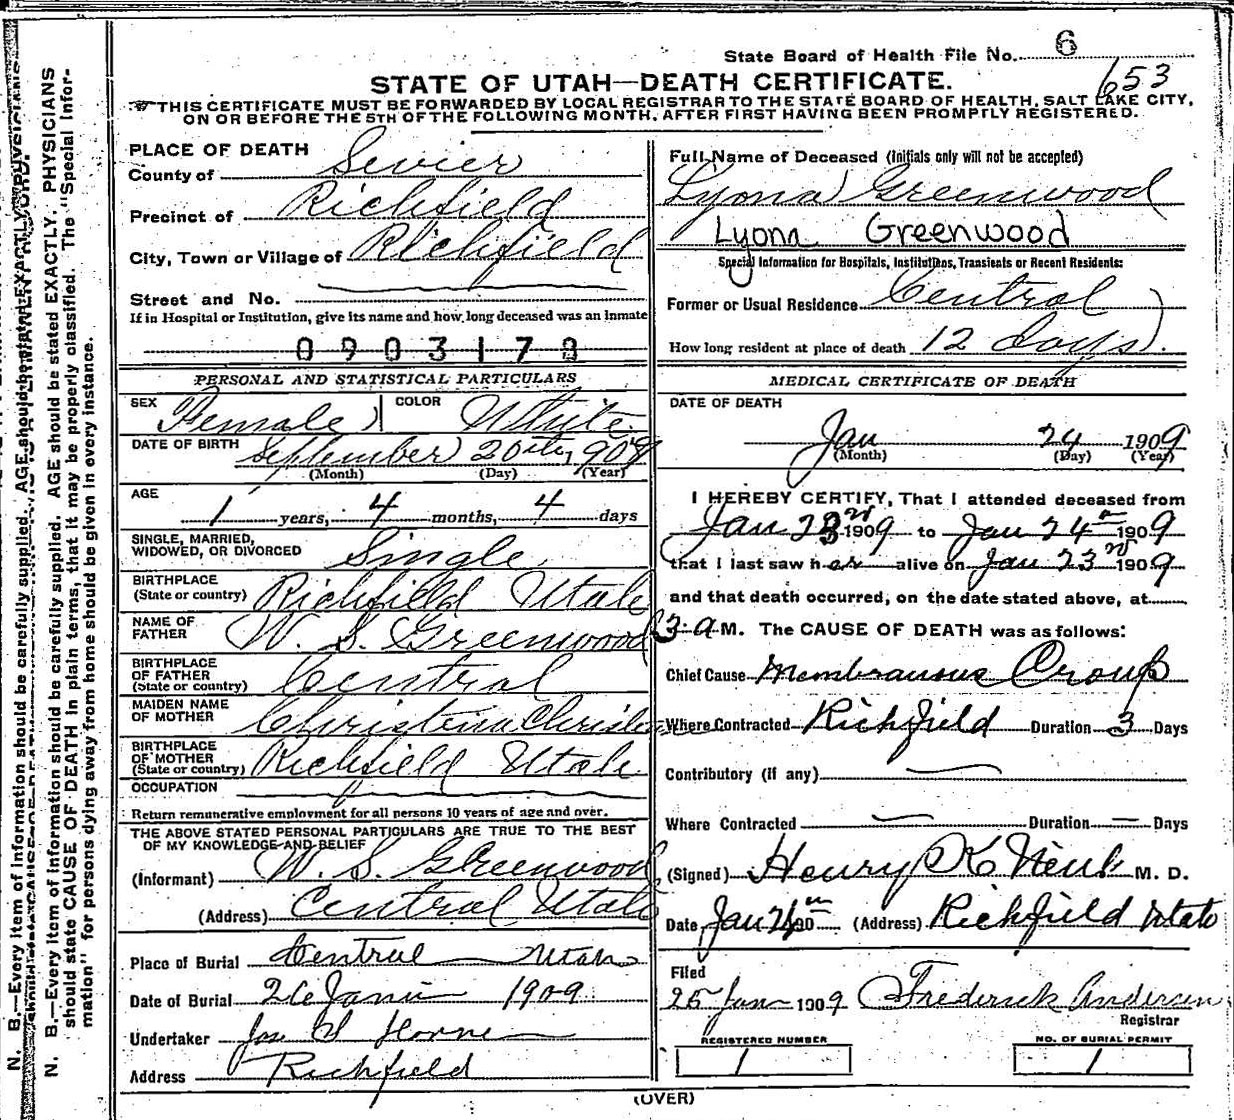 State Board of Health File No. 6
653
STATE OF UTAH—DEATH CERTIFICATE.
THIS CERTIFICATE MUST BE FORWARDED BY LOCAL REGISTRAR TO THE STATE BOARD OF HEALTH, SALT LAKE CITY,
ON OR BEFORE THE 5TH OF THE FOLLOWING MONTH, AFTER FIRST HAVING BEEN PROMPTLY REGISTERED.
PLACE OF DEATH
County of Sevier
Precinct of Richfield
City, Town or Village of Richfield
Street and No.
If in Hospital or Institution, give its name and how long deceased was an Inmate
0903178
PERSONAL AND STATISTICAL PARTICULARS
SEX Female COLOR White
DATE OF BIRTH September 20th, 190
(Month) (Day) (Year)
AGE
1 years, 4 months, 4 days
SINGLE, MARRIED,
WIDOWED, OR DIVORCED Single
BIRTHPLACE
(State or country) Richfield Utah
NAME OF
FATHER W. S. Greenwood
BIRTHPLACE
OF FATHER
(State or country) Central
MAIDEN NAME
OF MOTHER Christena
BIRTHPLACE
OF MOTHER
(State or country) Richfield Utah
OCCUPATION
Return remunerative employment for all persons 10 years of age and over.
THE ABOVE STATED PERSONAL PARTICULARS ARE TRUE TO THE BEST
OF MY KNOWLEDGE AND BELIEF
(Informant) W. S. Greenwood
(Address) Central Utah
Place of Burial Central Utah
Date of Burial 26 Jan 1909
Undertaker Jos Horne
Address Richfield
Full Name of Deceased (Initials only will not be accepted)
Lyona Greenwood
Lyona Greenwood
Special Information for Hospitals, Institutions, Transients or Recent Residents:
Former or Usual Residence Central
How long resident at place of death 12 days).
MEDICAL CERTIFICATE OF DEATH
DATE OF DEATH
Jan 24 1909
(Month) (Day) (Year)
I HEREBY CERTIFY, That I attended deceased from
Jan 23rd 1909 to Jan 24th 1909
that I last saw her alive on Jan 23rd 1909
and that death occurred, on the date stated above, at
3 a M. The CAUSE OF DEATH was as follows:
Chief Cause Membranous Croup
Where Contracted Richfield Duration 3 Days
Contributory (if any)
Where Contracted — Duration — Days
(Signed) Henry K M. D.
Date Jan 24th 190 (Address) Richfield Utah
Filed
25 Jan 1909 Frederick Andersen
Registrar
REGISTERED NUMBER
1
NO. OF BURIAL PERMIT
1
(OVER)
N. B.—Every item of information should be carefully supplied. AGE should be stated EXACTLY. PHYSICIANS
should state CAUSE OF DEATH in plain terms, that it may be properly classified. The "Special Infor-
mation" for persons dying away from home should be given in every instance.
N. B.—Every item of information should be carefully supplied. AGE should be stated EXACTLY. PHYSICIANS